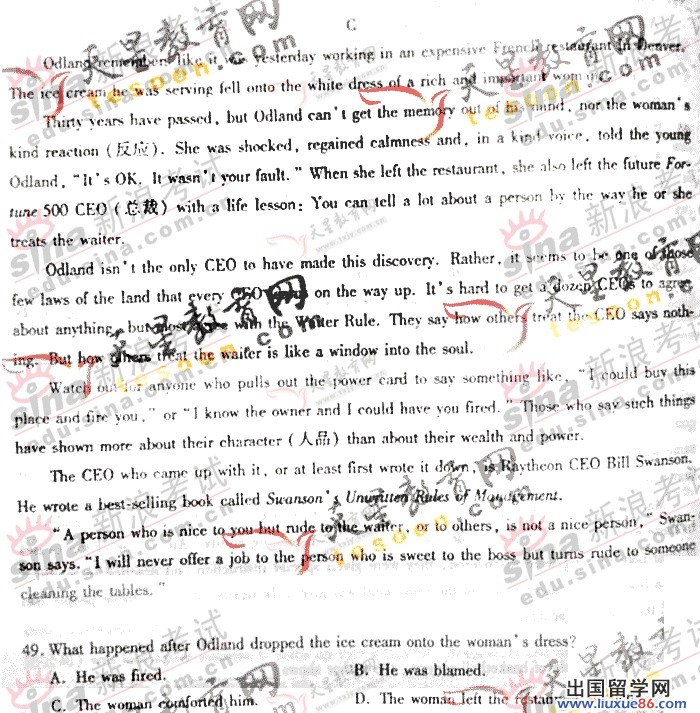 C
Odland remembers like it was yesterday working in an expensive French restaurant in Denver.
The ice cream he was serving fell onto the white dress of a rich and important woman.
Thirty years have passed, but Odland can't get the memory out of his mind, nor the woman's
kind reaction (反应). She was shocked, regained calmness and, in a kind voice, told the young
Odland, "It's OK. It wasn't your fault." When she left the restaurant, she also left the future For-
tune 500 CEO (总裁) with a life lesson: You can tell a lot about a person by the way he or she
treats the waiter.
Odland isn't the only CEO to have made this discovery. Rather, it seems to be one of those
few laws of the land that every CEO on the way up. It's hard to get a dozen CEOs to agree
about anything, but most agree with the Waiter Rule. They say how others treat the CEO says noth-
ing. But how others treat the waiter is like a window into the soul.
Watch out for anyone who pulls out the power card to say something like, "I could buy this
place and fire you," or "I know the owner and I could have you fired." Those who say such things
have shown more about their character (人品) than about their wealth and power.
The CEO who came up with it, or at least first wrote it down, is Raytheon CEO Bill Swanson.
He wrote a best-selling book called Swanson's Unwritten Rules of Management.
"A person who is nice to you but rude to the waiter, or to others, is not a nice person," Swan-
son says. "I will never offer a job to the person who is sweet to the boss but turns rude to someone
cleaning the tables."
49. What happened after Odland dropped the ice cream onto the woman's dress?
A. He was fired.
B. He was blamed.
C. The woman comforted him.
D. The woman left the restaurant
天星教育网
tesoon.com
sina新浪考试
edu.sina.com.cn
出国留学网
www.liuxue86.com